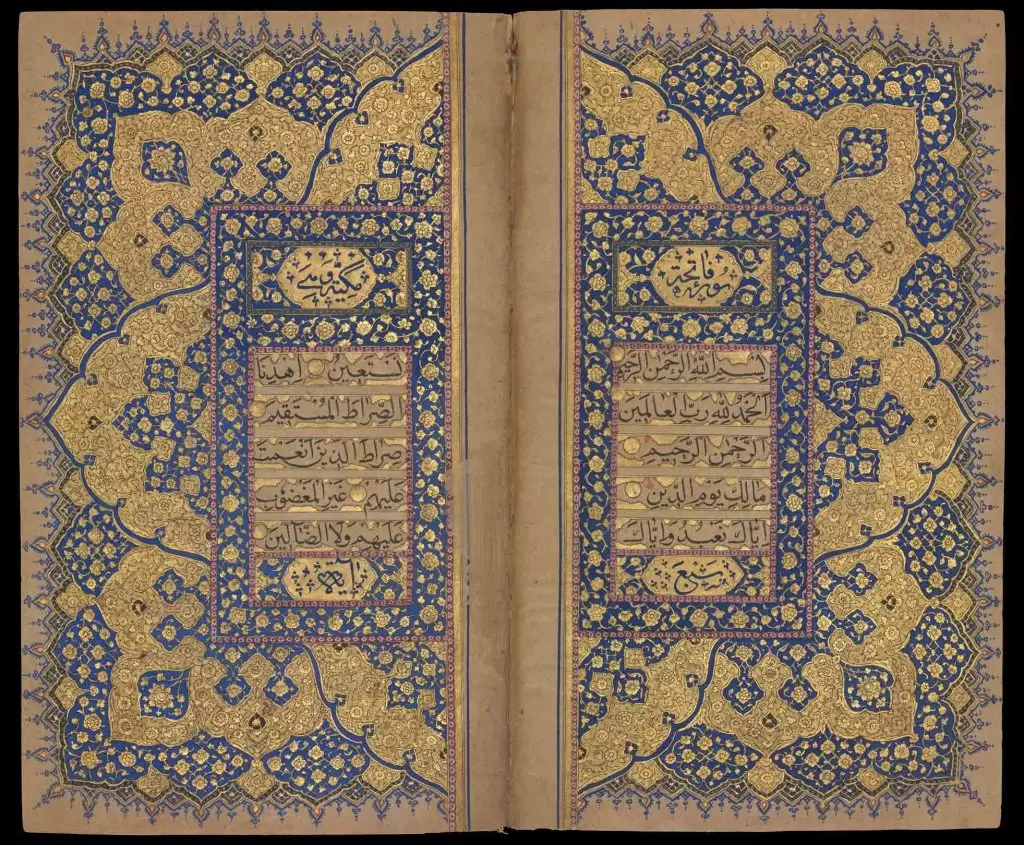 سورة فاتحة
بِسْمِ اللهِ الرَّحْمٰنِ الرَّحِيمِ
اَلْحَمْدُ لِلّٰهِ رَبِّ الْعَالَمِينَ
الرَّحْمٰنِ الرَّحِيمِ
مَالِكِ يَوْمِ الدِّينِ
اِيَّاكَ نَعْبُدُ وَاِيَّاكَ
سبع
مكية وهي
نَسْتَعِينُ اِهْدِنَا
الصِّرَاطَ الْمُسْتَقِيمَ
صِرَاطَ الَّذِينَ اَنْعَمْتَ
عَلَيْهِمْ غَيْرِ الْمَغْضُوبِ
عَلَيْهِمْ وَلَا الضَّالِّينَ
اية